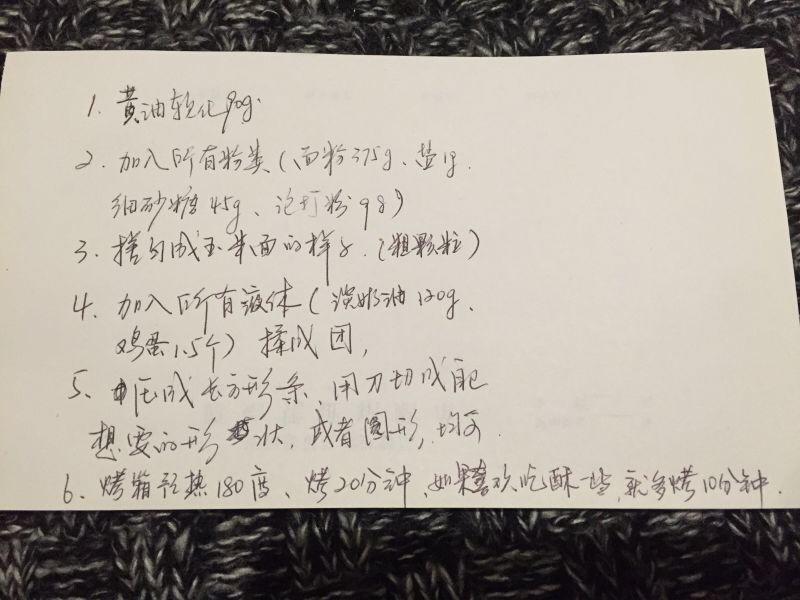 1. 黄油软化90g.
2. 加入所有粉类(面粉375g、盐1g.
细砂糖45g、泡打粉9g)
3. 搓匀成玉米面的样子.(粗颗粒)
4. 加入所有液体(淡奶油120g、
鸡蛋1.5个)揉成团,
5、压成长方形条,用刀切成自己
想要的形状,或者圆形,均可.
6、烤箱预热180度、烤20分钟,如果喜欢吃酥一些,就多烤10分钟.